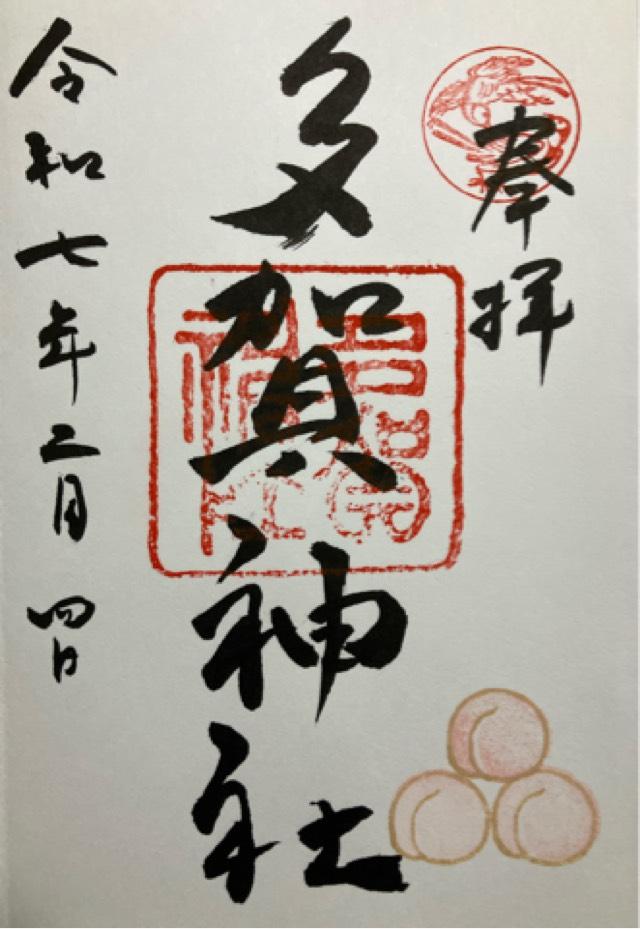 奉拝
多賀神社
令和七年二月四日